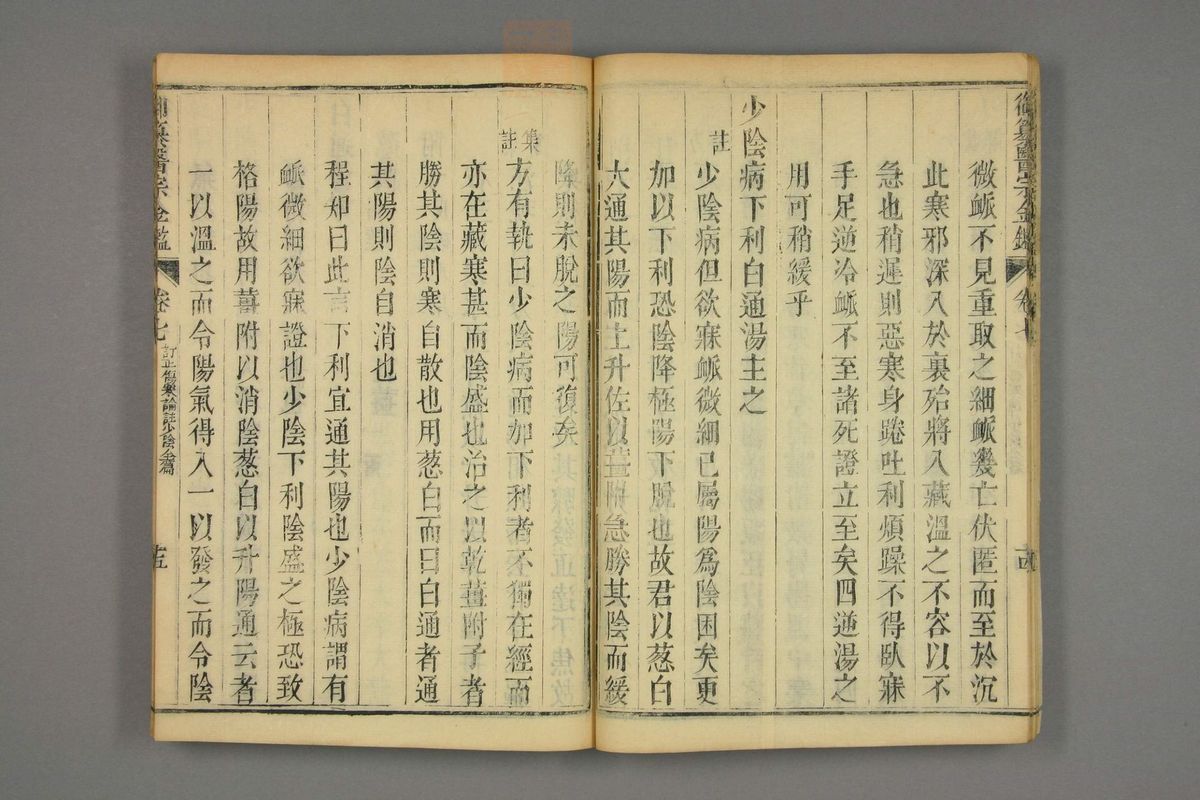 御纂醫宗金鑑 卷七 十四
微䘑不見重取之細䘑幾亡伏匿而至於沉
此寒邪深入於裏殆將入藏溫之不容以不
急也稍遲則惡寒身踡吐利煩躁不得臥寐
手足逆冷䘑不至諸死證立至矣四逆湯之
用可稍緩乎
少陰病下利白通湯主之
註
少陰病但欲寐䘑微細已屬陽為陰困矣更
加以下利恐陰降極陽下脫也故君以葱白
大通其陽而上升佐以薑附急勝其陰而緩
降則未脫之陽可復矣
集註
方有執曰少陰病而加下利者不獨在經而
亦在藏寒甚而陰盛也治之以乾薑附子者
勝其陰則寒自散也用葱白而曰白通者通
其陽則陰自消也
程知曰此言下利宜通其陽也少陰病謂有
䘑微細欲寐證也少陰下利陰盛之極恐致
格陽故用薑附以消陰葱白以升陽通云者
一以溫之而令陽氣得入一以發之而令陰
御纂醫宗金鑑 卷七 訂正傷寒論註少陰全篇 十五